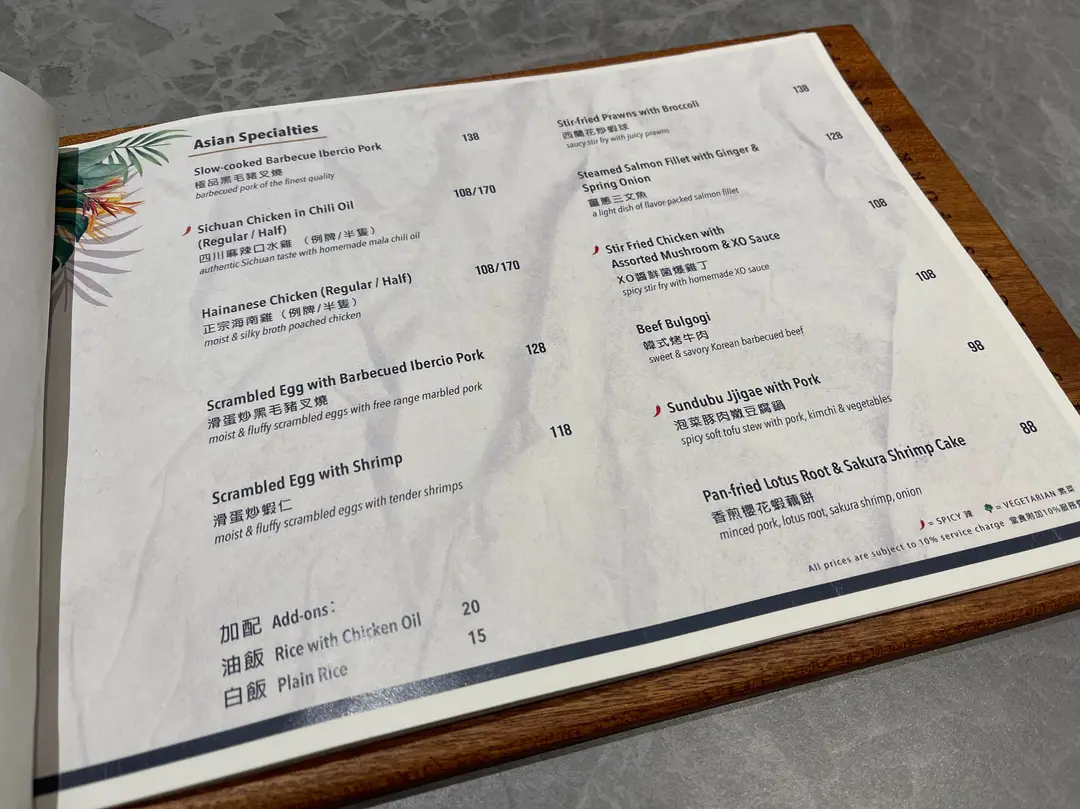 Asian Specialties
Slow-cooked Barbecue Ibercio Pork 138
極品黑毛豬叉燒
barbecued pork of the finest quality
Sichuan Chicken in Chili Oil 108/170
(Regular / Half)
四川麻辣口水雞 （例牌/半隻）
authentic Sichuan taste with homemade mala chili oil
Hainanese Chicken (Regular / Half) 108/170
正宗海南雞（例牌/半隻）
moist & silky broth poached chicken
Scrambled Egg with Barbecued Ibercio Pork 128
滑蛋炒黑毛豬叉燒
moist & fluffy scrambled eggs with free range marbled pork
Scrambled Egg with Shrimp 118
滑蛋炒蝦仁
moist & fluffy scrambled eggs with tender shrimps
加配 Add-ons:
油飯 Rice with Chicken Oil 20
白飯 Plain Rice 15
Stir-fried Prawns with Broccoli 138
西蘭花炒蝦球
saucy stir fry with juicy prawns
Steamed Salmon Fillet with Ginger & 128
Spring Onion
薑蔥三文魚
a light dish of flavor-packed salmon fillet
Stir Fried Chicken with 108
Assorted Mushroom & XO Sauce
XO醬鮮菌爆雞丁
spicy stir fry with homemade XO sauce
Beef Bulgogi 108
韓式烤牛肉
sweet & savory Korean barbecued beef
Sundubu Jjigae with Pork 98
泡菜豚肉嫩豆腐鍋
spicy soft tofu stew with pork, kimchi & vegetables
Pan-fried Lotus Root & Sakura Shrimp Cake 88
香煎櫻花蝦藕餅
minced pork, lotus root, sakura shrimp, onion
= SPICY 辣 = VEGETARIAN 素菜
All prices are subject to 10% service charge 堂食附加10%服務